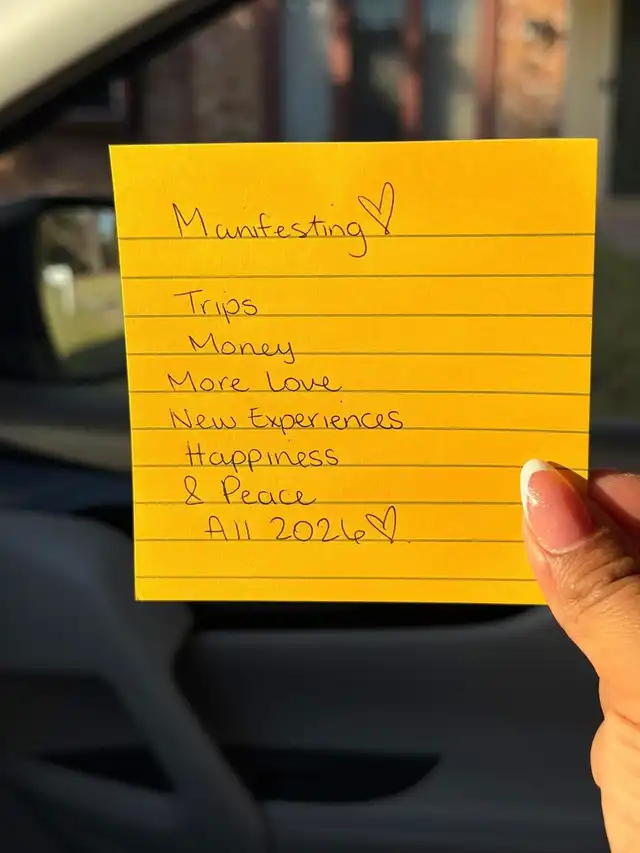 Manifesting♡
Trips
Money
More Love
New Experiences
Happiness
& Peace
All 2026♡